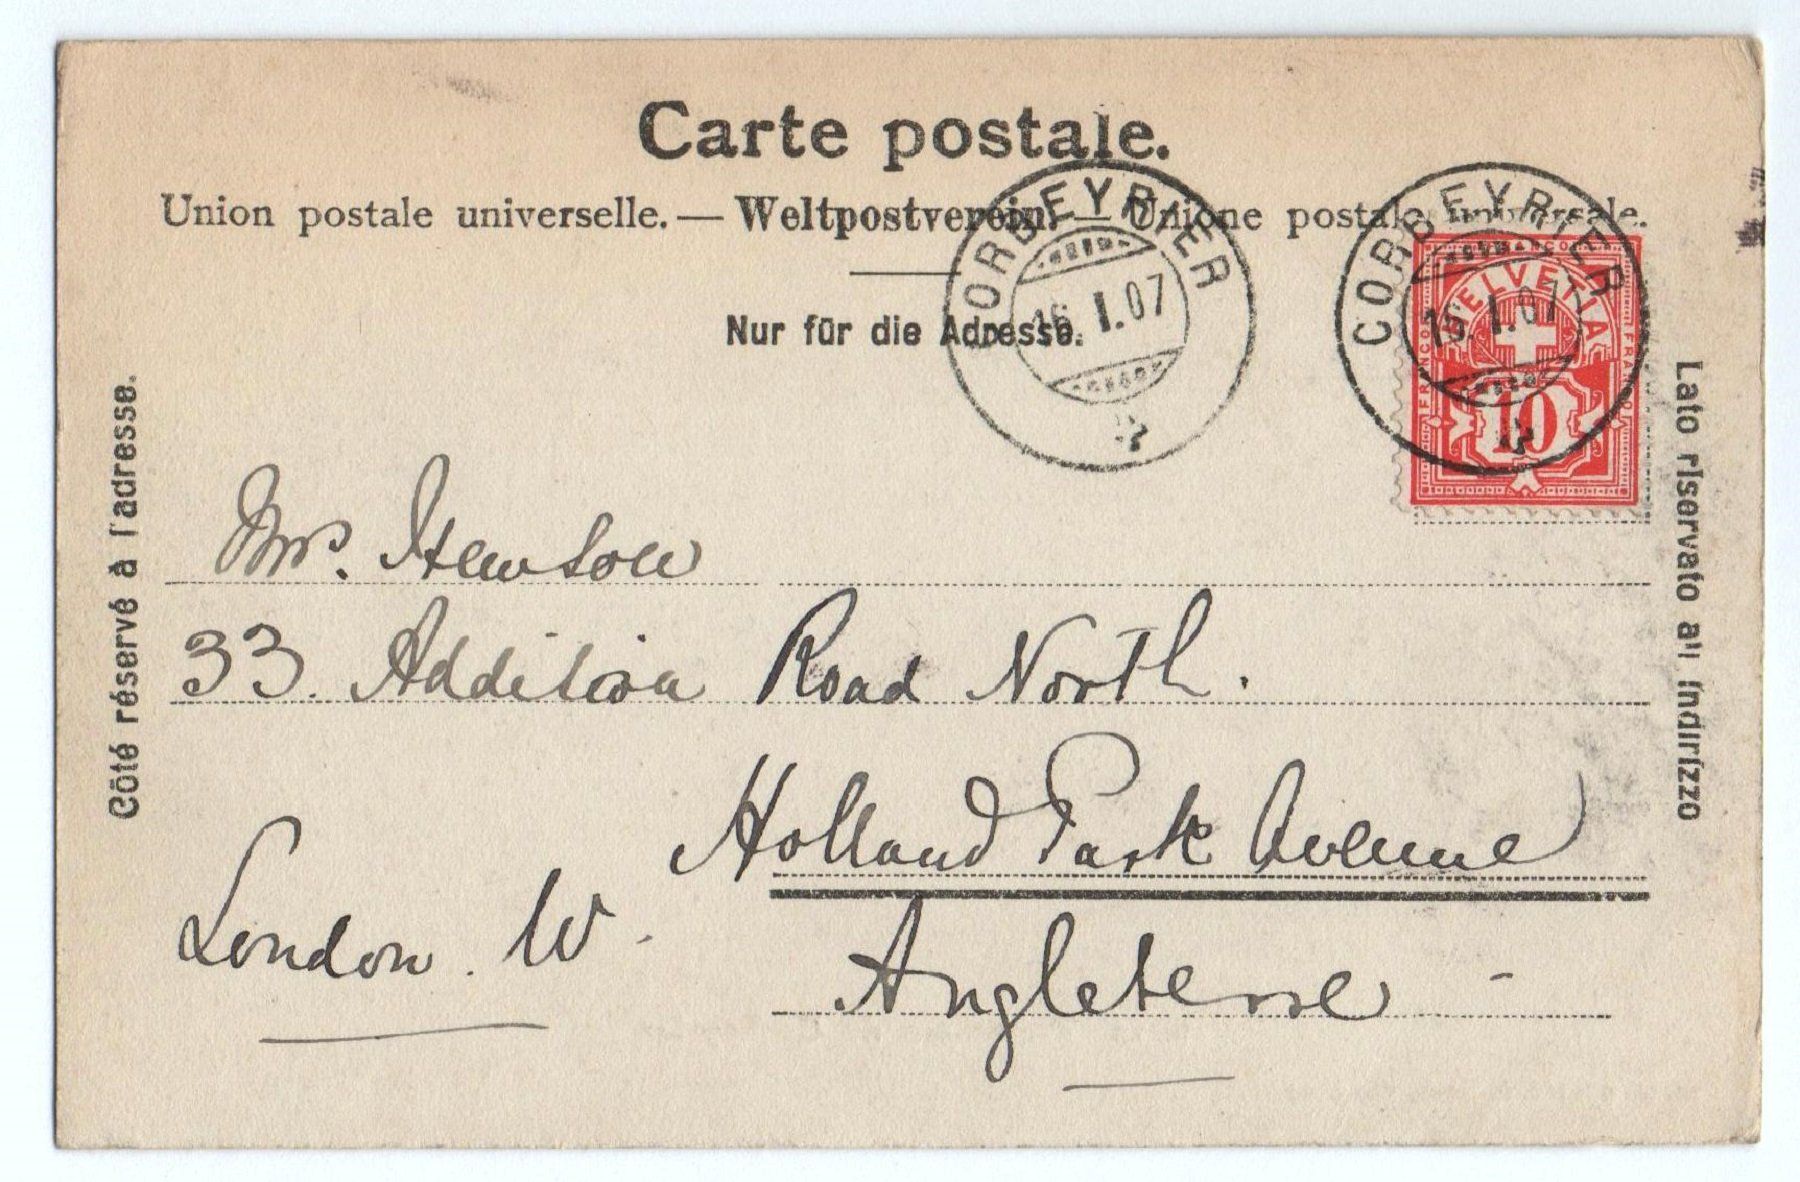 Carte postale.
Union postale universelle. — Weltpostverein. — Unione postale universale.
Nur für die Adresse.
Côté réservé à l'adresse.
Lato riservato all' indirizzo
CORBEYRIER
16. I. 07
CORBEYRIER
16. I. 07
FRANCO
HELVETIA
FRANCO
FRANCO
10
Mrs. Hewson
33. Addison Road North.
Holland Park Avenue
London. W.
Angleterre -